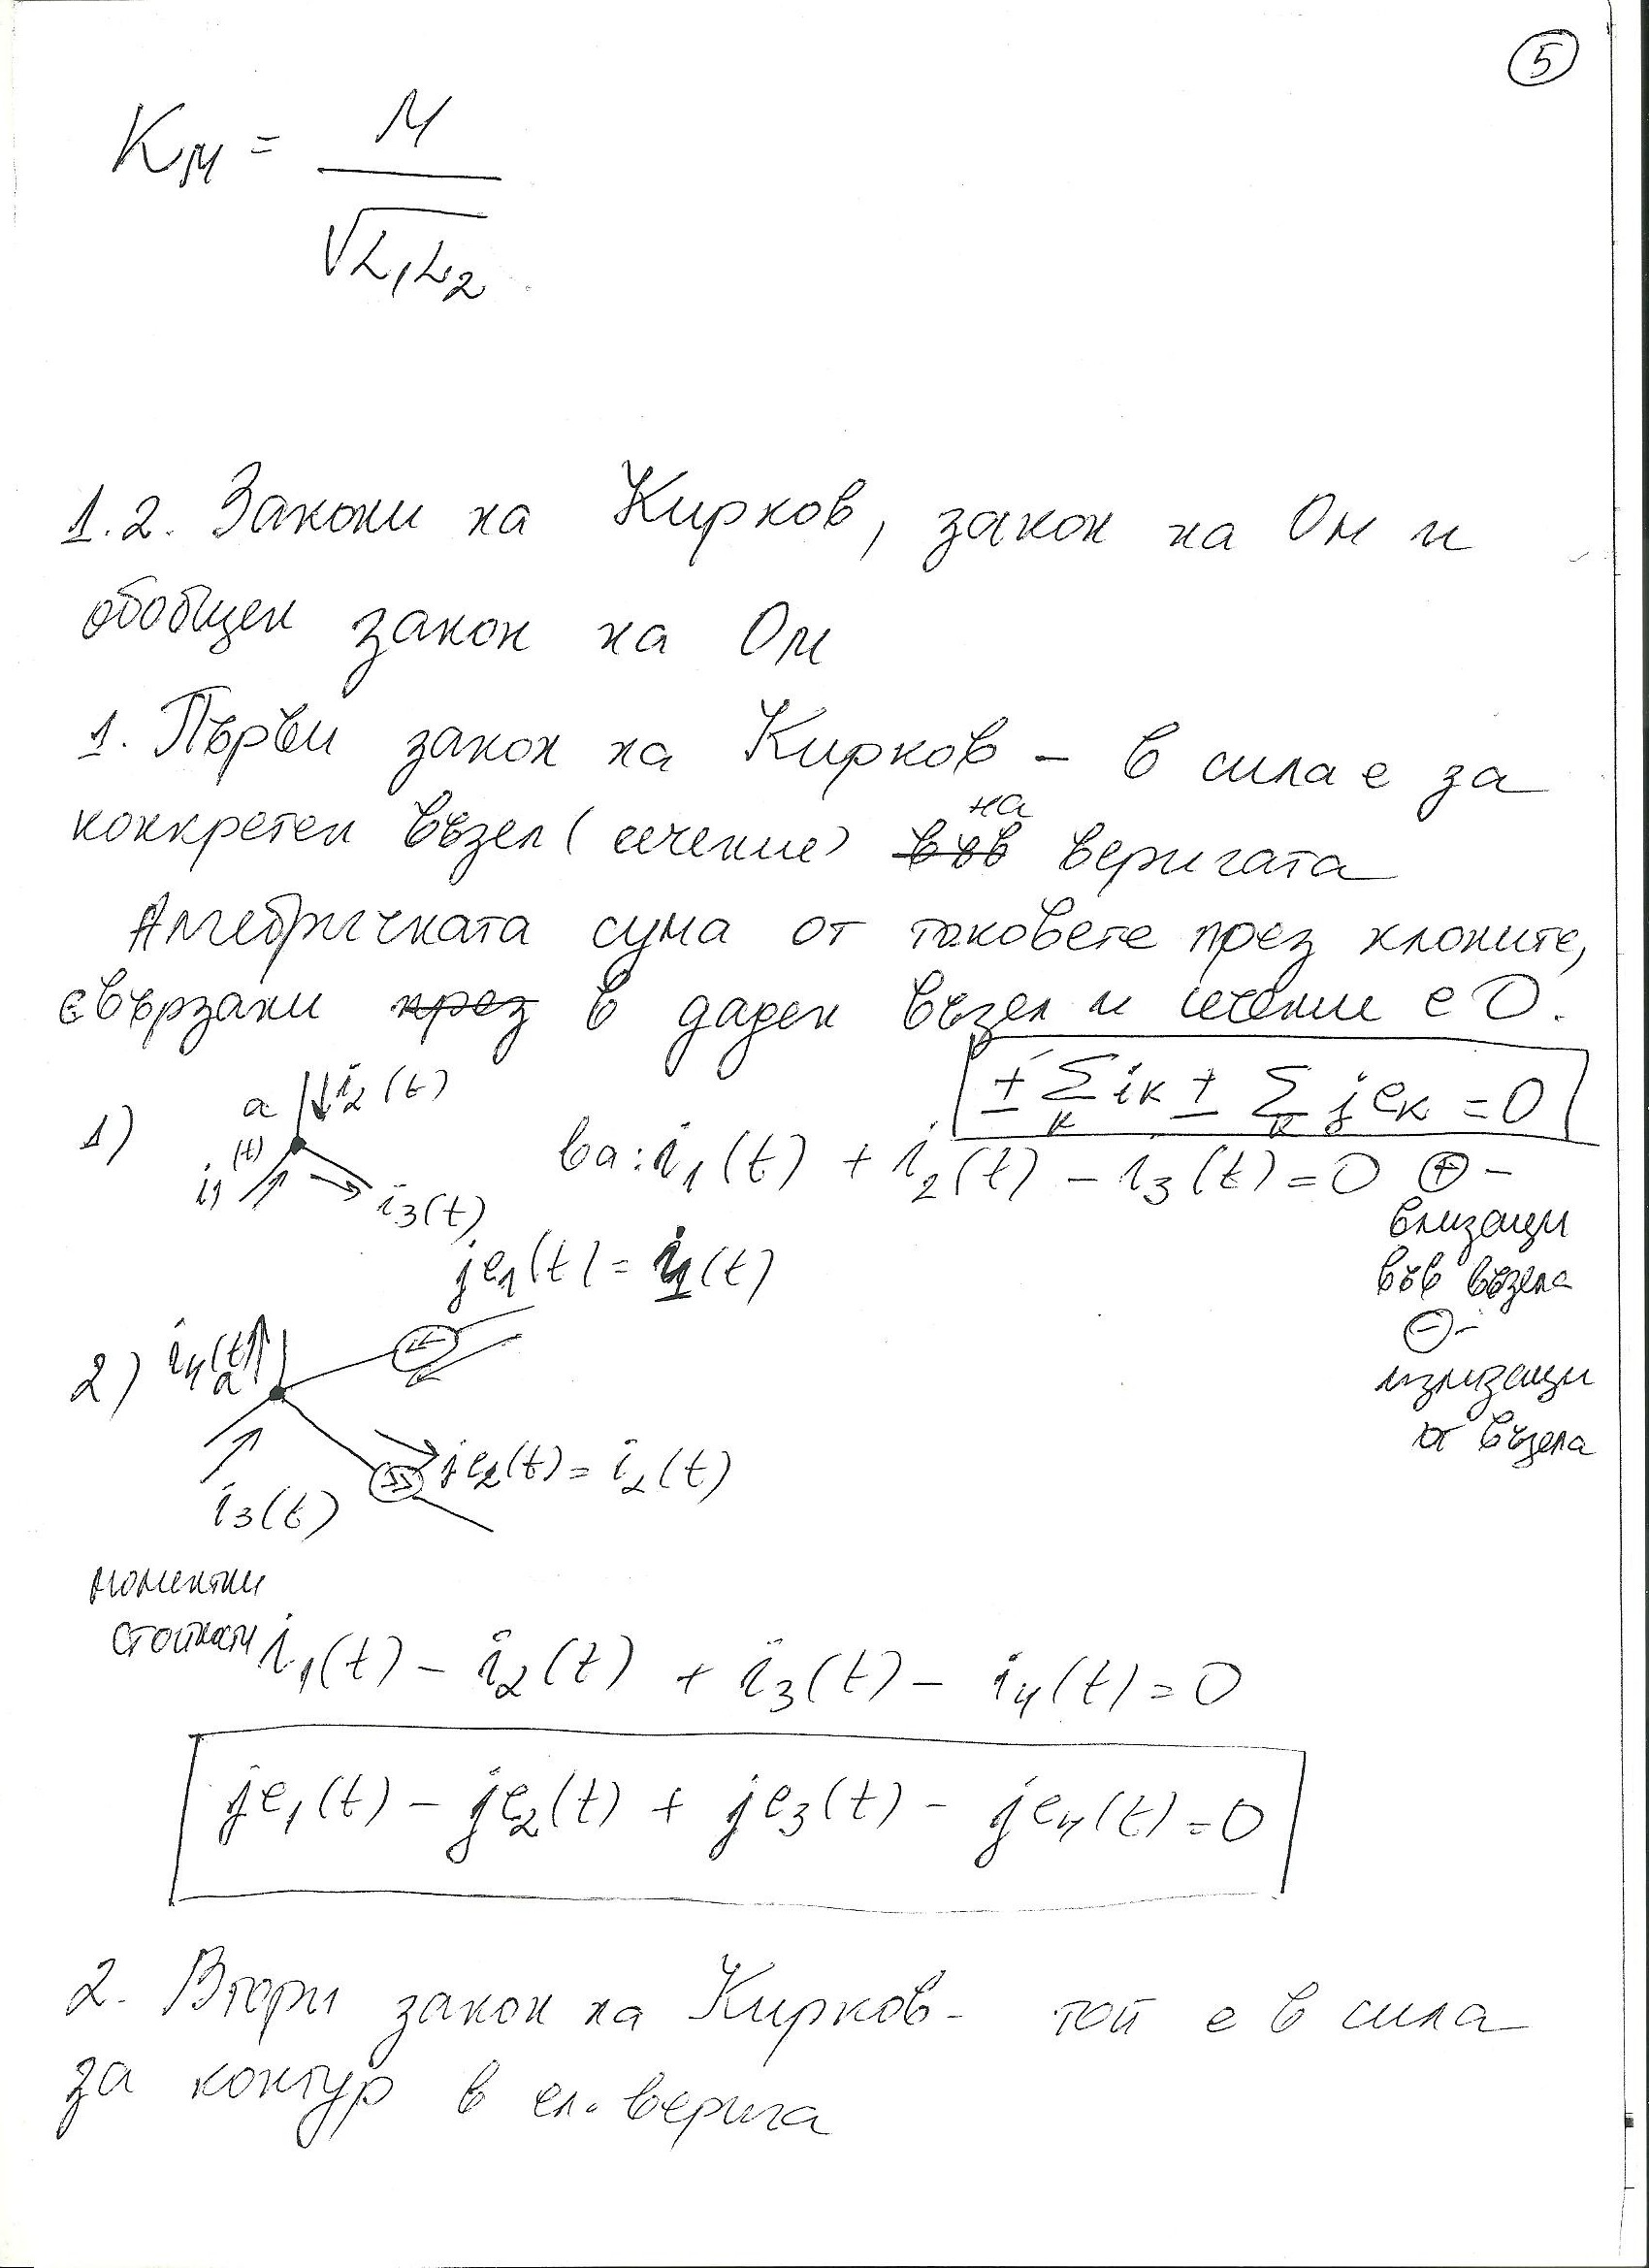 5
KM = M / √L1L2
1.2. Закони на Кирхов, закон на Ом и
обобщен закон на Ом
1. Първи закон на Кирхов – в сила е за
конкретен възел (сечение) във на веригата
Алгебричната сума от токовете през клоните,
свързани през в даден възел и сечение е 0.
± Σk ik ± Σk jek = 0
1) a i2(t)
i1(t) i3(t)
в a: i1(t) + i2(t) – i3(t) = 0 ⊕ –
влизащи
във възела
⊖ –
излизащи
от възела
je1(t) = i1(t)
2) i4(t) a
je2(t) = i2(t)
i3(t)
моментни
стойности i1(t) – i2(t) + i3(t) – i4(t) = 0
je1(t) – je2(t) + je3(t) – je4(t) = 0
2. Втори закон на Кирхов – той е в сила
за контур в ел. верига